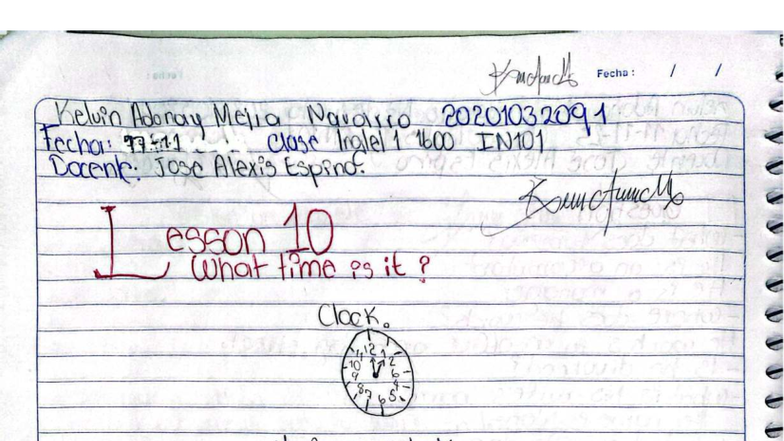 Fecha: / /
Kelvin Adonay Mejia Navarro 20201032091
Fecha: Clase Inglel 1 1600 IN101
Docente: Jose Alexis Espino.
Lesson 10
What time is it?
Clock.
12
11 1
10 2
9
8 4
7 6 5